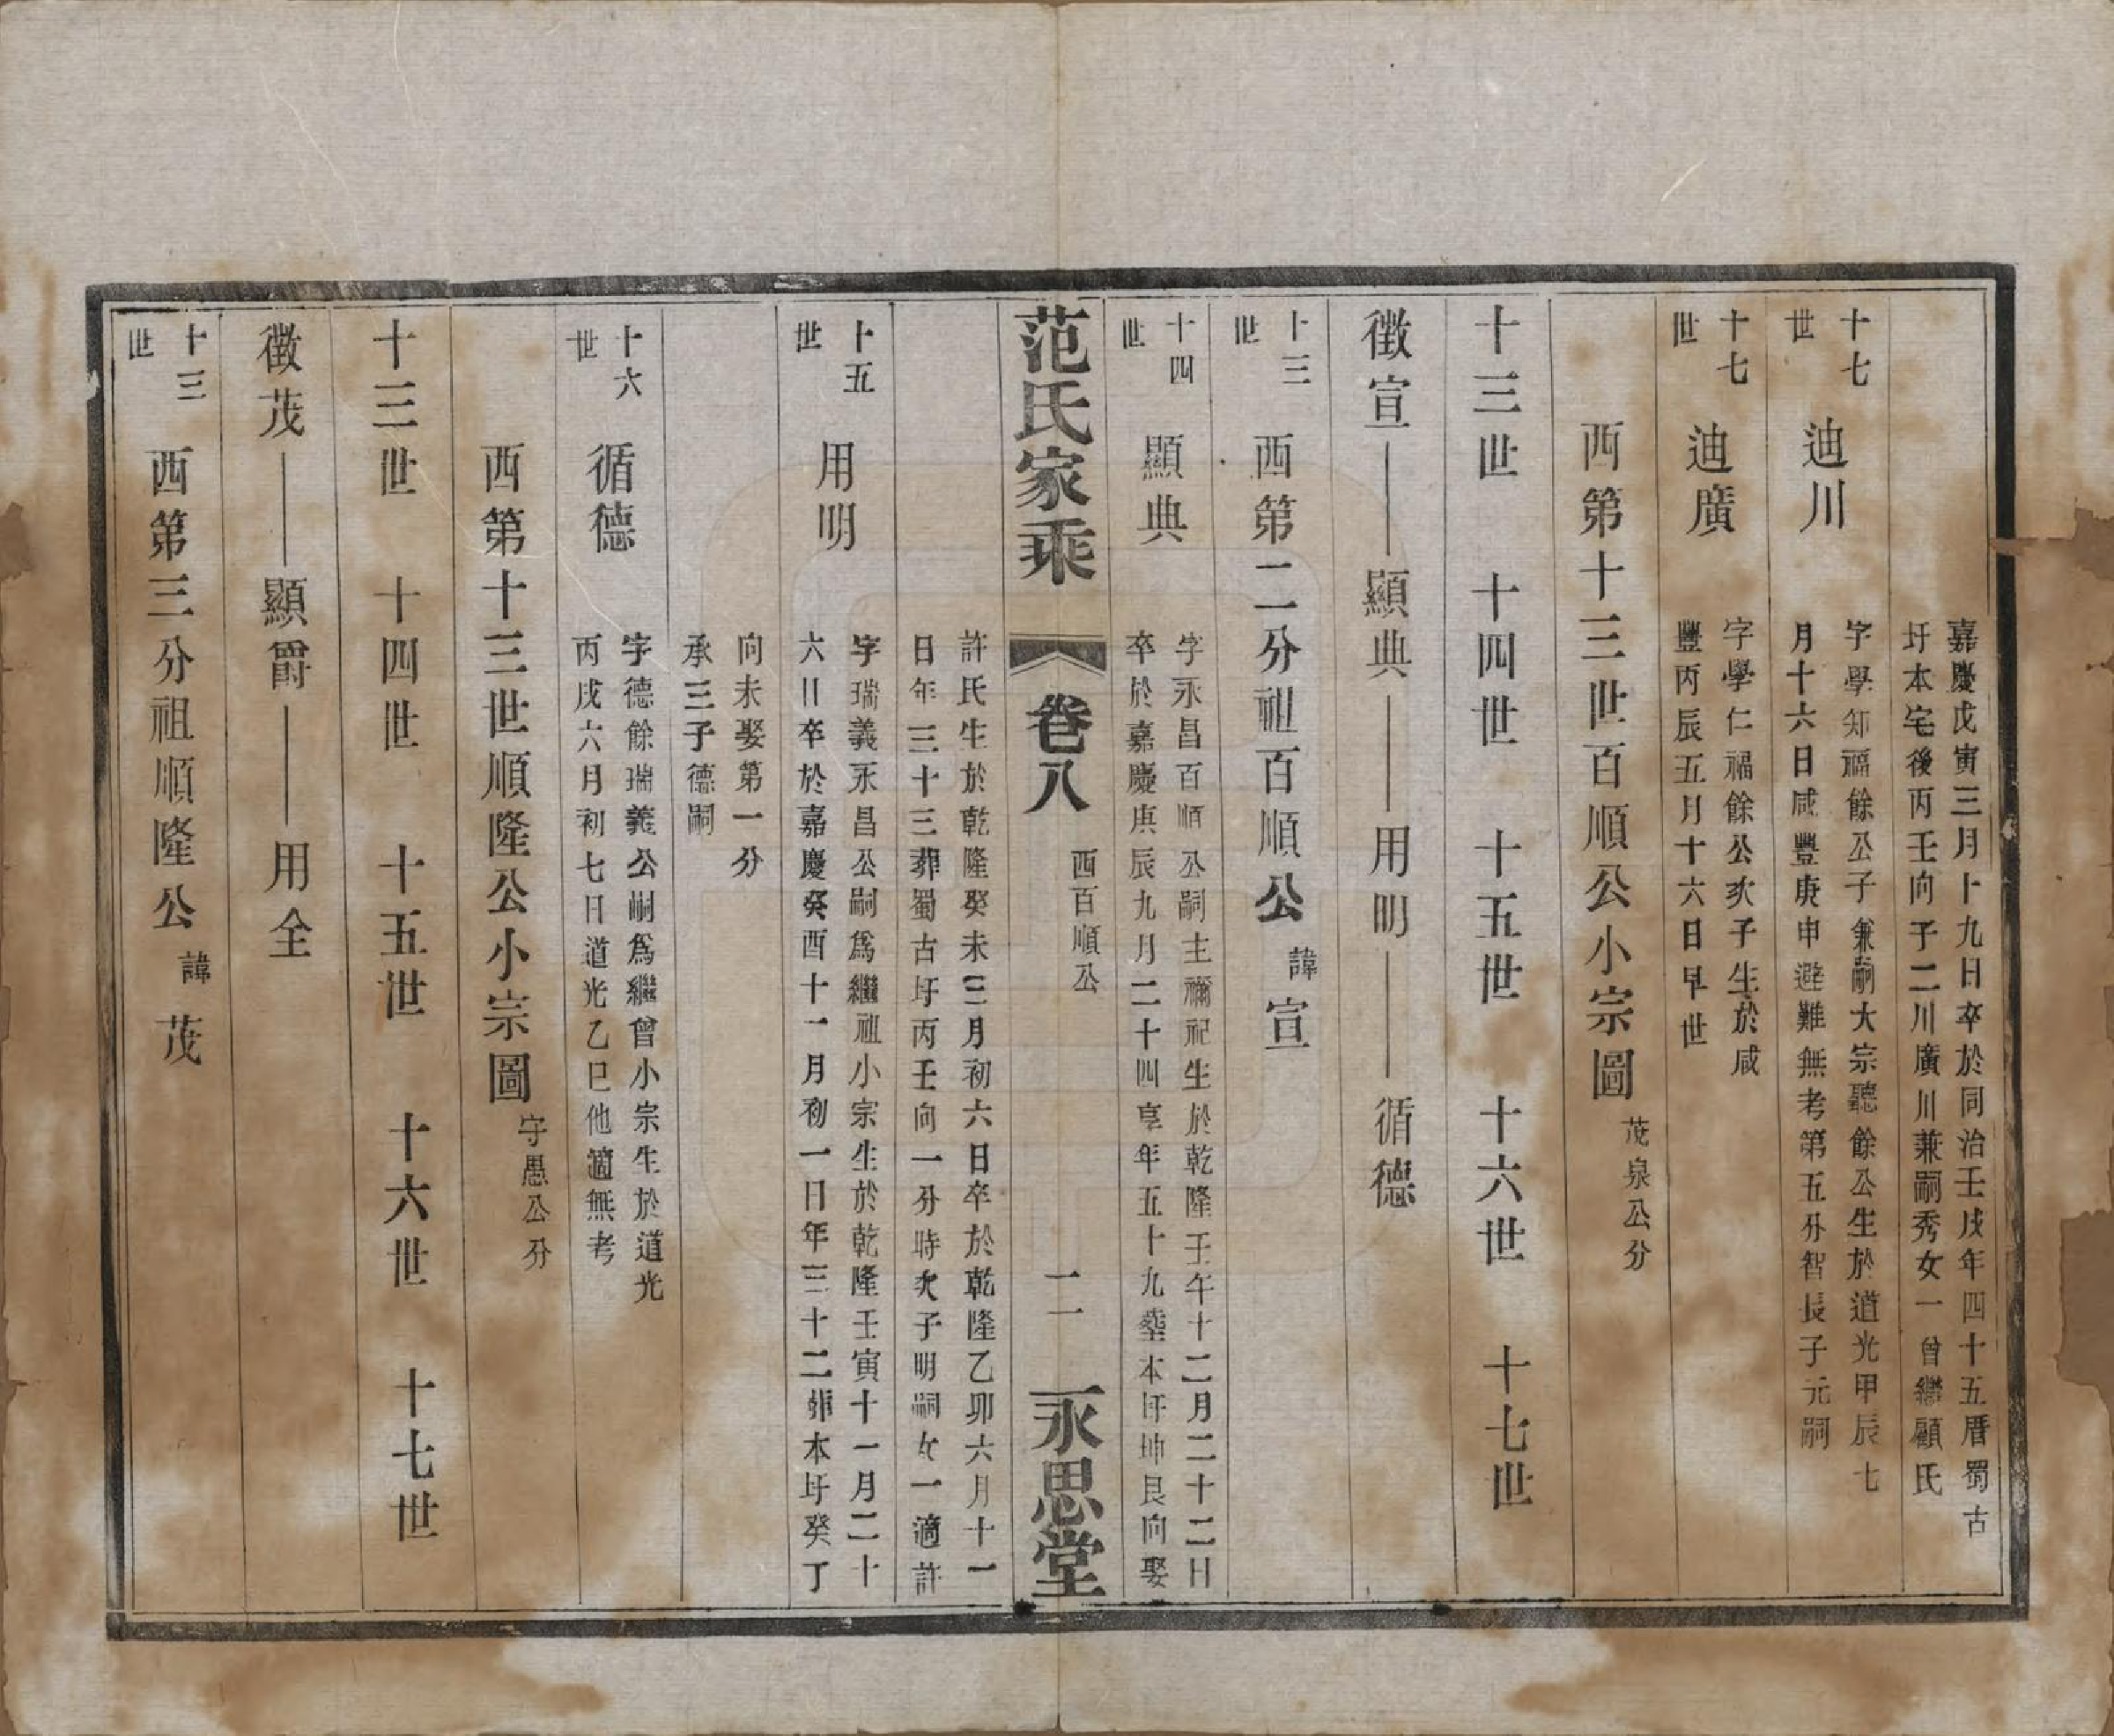 嘉慶戊寅三月十九日卒於同治壬戌年四十五厝蜀古
圩本宅後丙壬向子二川廣川兼嗣秀女一曾繼顧氏
十七世
迪川
字學知福餘公子兼嗣大宗聽餘公生於道光甲辰七
月十六日咸豐庚申避難無考第五分智長子元嗣
十七世
迪廣
字學仁福餘公次子生於咸
豐丙辰五月十六日早世
西第十三世百順公小宗圖 茂泉公分
十三世 十四世 十五世 十六世 十七世
徵宣——顯典——用明——循德
十三世
西第二分祖百順公 諱宣
十四世
顯典
字永昌百順公嗣主禰祀生於乾隆壬午十二月二十二日
卒於嘉慶庚辰九月二十四享年五十九塟本圩坤艮向娶
范氏家乘 卷八 西百順公 二 永思堂
許氏生於乾隆癸未三月初六日卒於乾隆乙卯六月十一
日年三十三葬蜀古圩丙壬向一分時次子明嗣女一適許
十五世
用明
字瑞義永昌公嗣爲繼祖小宗生於乾隆壬寅十一月二十
六日卒於嘉慶癸酉十一月初一日年三十二葬本圩癸丁
向未娶第一分
承三子德嗣
十六世
循德
字德餘瑞義公嗣爲繼曾小宗生於道光
丙戌六月初七日道光乙巳他適無考
西第十三世順隆公小宗圖 守愚公分
十三世 十四世 十五世 十六世 十七世
徵茂——顯爵——用全
十三世
西第三分祖順隆公 諱茂